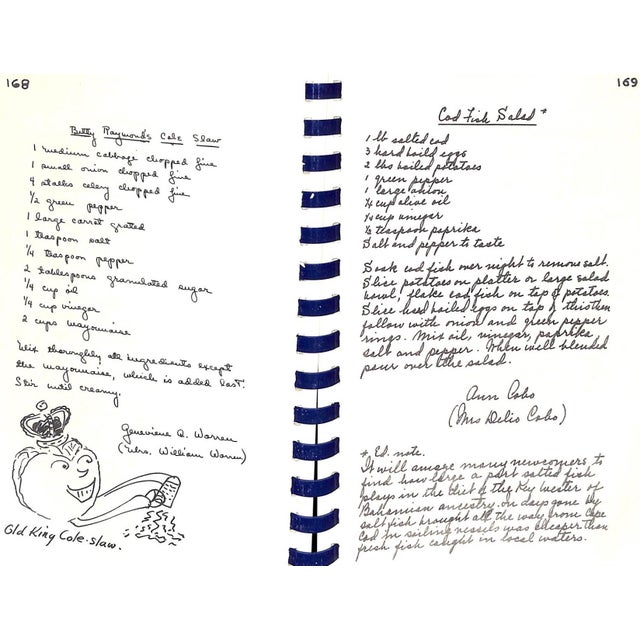 168
Betty Raymond's Cole Slaw
1 medium cabbage chopped fine
1 small onion chopped fine
4 stalks celery chopped fine
1/2 green pepper
1 large carrot grated
1 teaspoon salt
1/4 teaspoon pepper
2 tablespoons granulated sugar
1/4 cup oil
1/4 cup vinegar
2 cups mayonnaise
Mix thoroughly all ingredients except
the mayonnaise, which is added last.
Stir until creamy.
Genevieve Q. Warren
(Mrs. William Warren)
Old King Cole-slaw.
169
Cod Fish Salad *
1 lb salted cod
3 hard boild eggs
2 lbs boiled potatoes
1 green pepper
1 large onion
1/4 cup olive oil
1/4 cup vinegar
1/2 teaspoon paprika
Salt and pepper to taste
Soak cod fish over night to remove salt.
Slice potatoes on platter or large salad
bowl, flake cod fish on top of potatoes.
Slice hard boiled eggs on top of this then
follow with onion and green pepper
rings. Mix oil, vinegar, paprika
salt and pepper. When well blended
pour over the salad.
Ann Cobo
(Mrs Delio Cobo)
* Ed. note.
It will amaze many newcomers to
find how large a part salted fish
plays in the diet of the Key Wester of
Bahamian ancestry. In days gone by
salt fish brought all the way from Cape
Cod in sailing vessels was cheaper than
fresh fish caught in local waters.